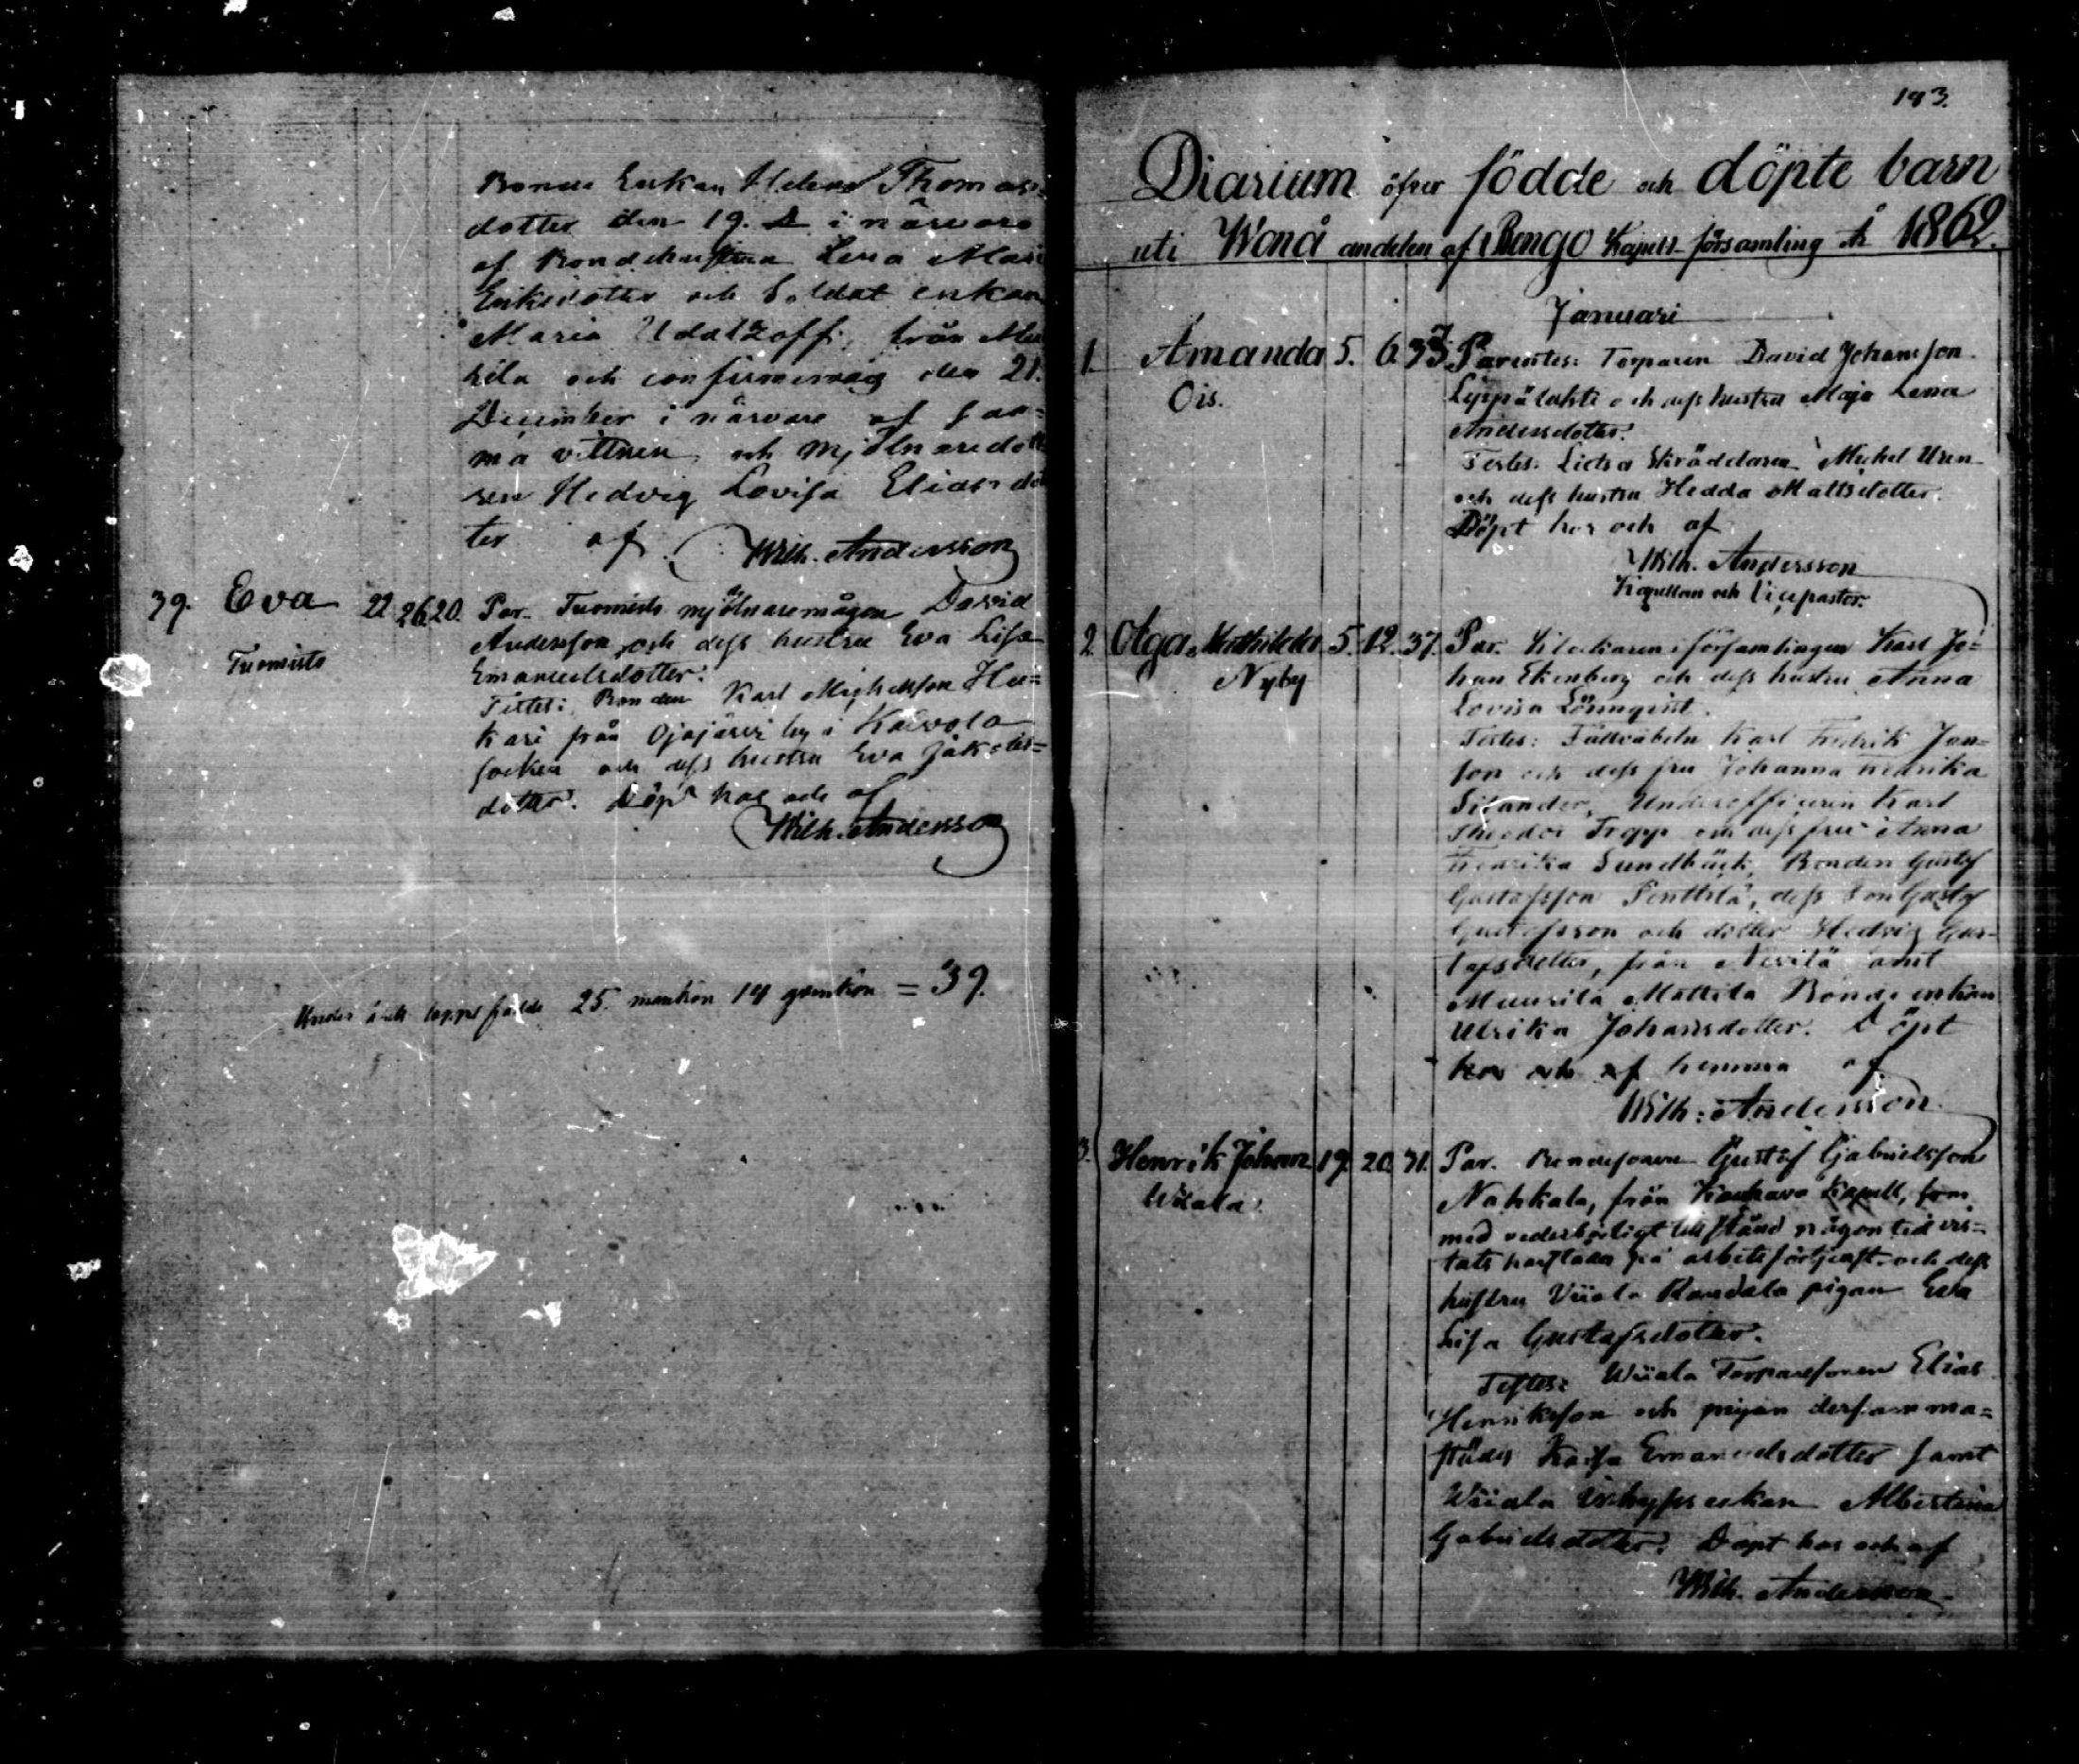 Bonde Enkan Helena Thomas-
dotter den 19. D. i närvaro
af Bondehustrun Lena Maria
Eriksdotter och Soldat enkan
Maria Udaltzoff, från Mu
hila och confirmerad den 21.
December i närvaro af sam=
ma vittnen och Mjölnaredott
ren Hedvig Lovisa Eliasdot
ter af Wilh. Andersson
39. Eva 22 26 20. Par. Tuomisto mjölnaremågen David
Andersson och dess hustru Eva Lisa
Tuomisto
Emanuelsdotter.
Testes: Bonden Karl Michelsson Hu=
kari från Ojajärvi by i Kalvola
socken och dess hustru Eva Jakobs=
dotter. Döpt hos och af
Wilh. Andersson
Under årets lopp födde 25. mankön 14 qvinkön = 39.
193.
Diarium öfver födde och döpte barn
uti Wånå andelen af Rengo Kapell-församling År 1862.
Januari
1. Amanda 5. 6. 33. Parentes: Torparen David Johansson
Ois. Leppälahti och dess hustru Maja Lena
Andersdotter.
Testes: Skräddaren Michel Uren
och dess hustru Hedda Mattsdotter.
Döpt hos och af
Wilh. Andersson
Kapellan och Vicepastor.
2. Olga Mathilda 5. 12. 37. Par. Klockaren i församlingen Karl Jo=
Nyby han Ekenberg och dess hustru Anna
Lovisa Lönnqvist.
Testes: Fältväbeln Karl Fredrik Jan=
son och dess fru Johanna Fredrika
Silander, Underofficeren Karl
Theodor Tropp och dess fru Anna
Fredrika Sundbäck, Bonden Gustaf
Gustafsson Penttilä, dess son Gustaf
Gustafsson och dotter Hedvig Gus-
tafsdotter, från Nevilä samt
Muurila Mattila Bonde enkan
Ulrika Johansdotter. Döpt
hos och af hemma af
Wilh: Andersson
3. Henrik Johan 19. 20. 31. Par. Bondesonen Gustaf Gabrielsson
Wiiala. Nahkala, från Kauhava Kapell, som
med vederbörligt tillstånd någon tid vis=
tats härstädes på arbetsförtjenst och dess
hustru Viiala Randala pigan Eva
Lisa Gustafsdotter.
Testes: Wiiala Torparesonen Elias
Henriksson och pigan dersamma=
städes Kaisa Emanuelsdotter samt
Wiiala Inhyses enkan Albertina
Gabrielsdotter. Döpt hos och af
Wilh. Andersson